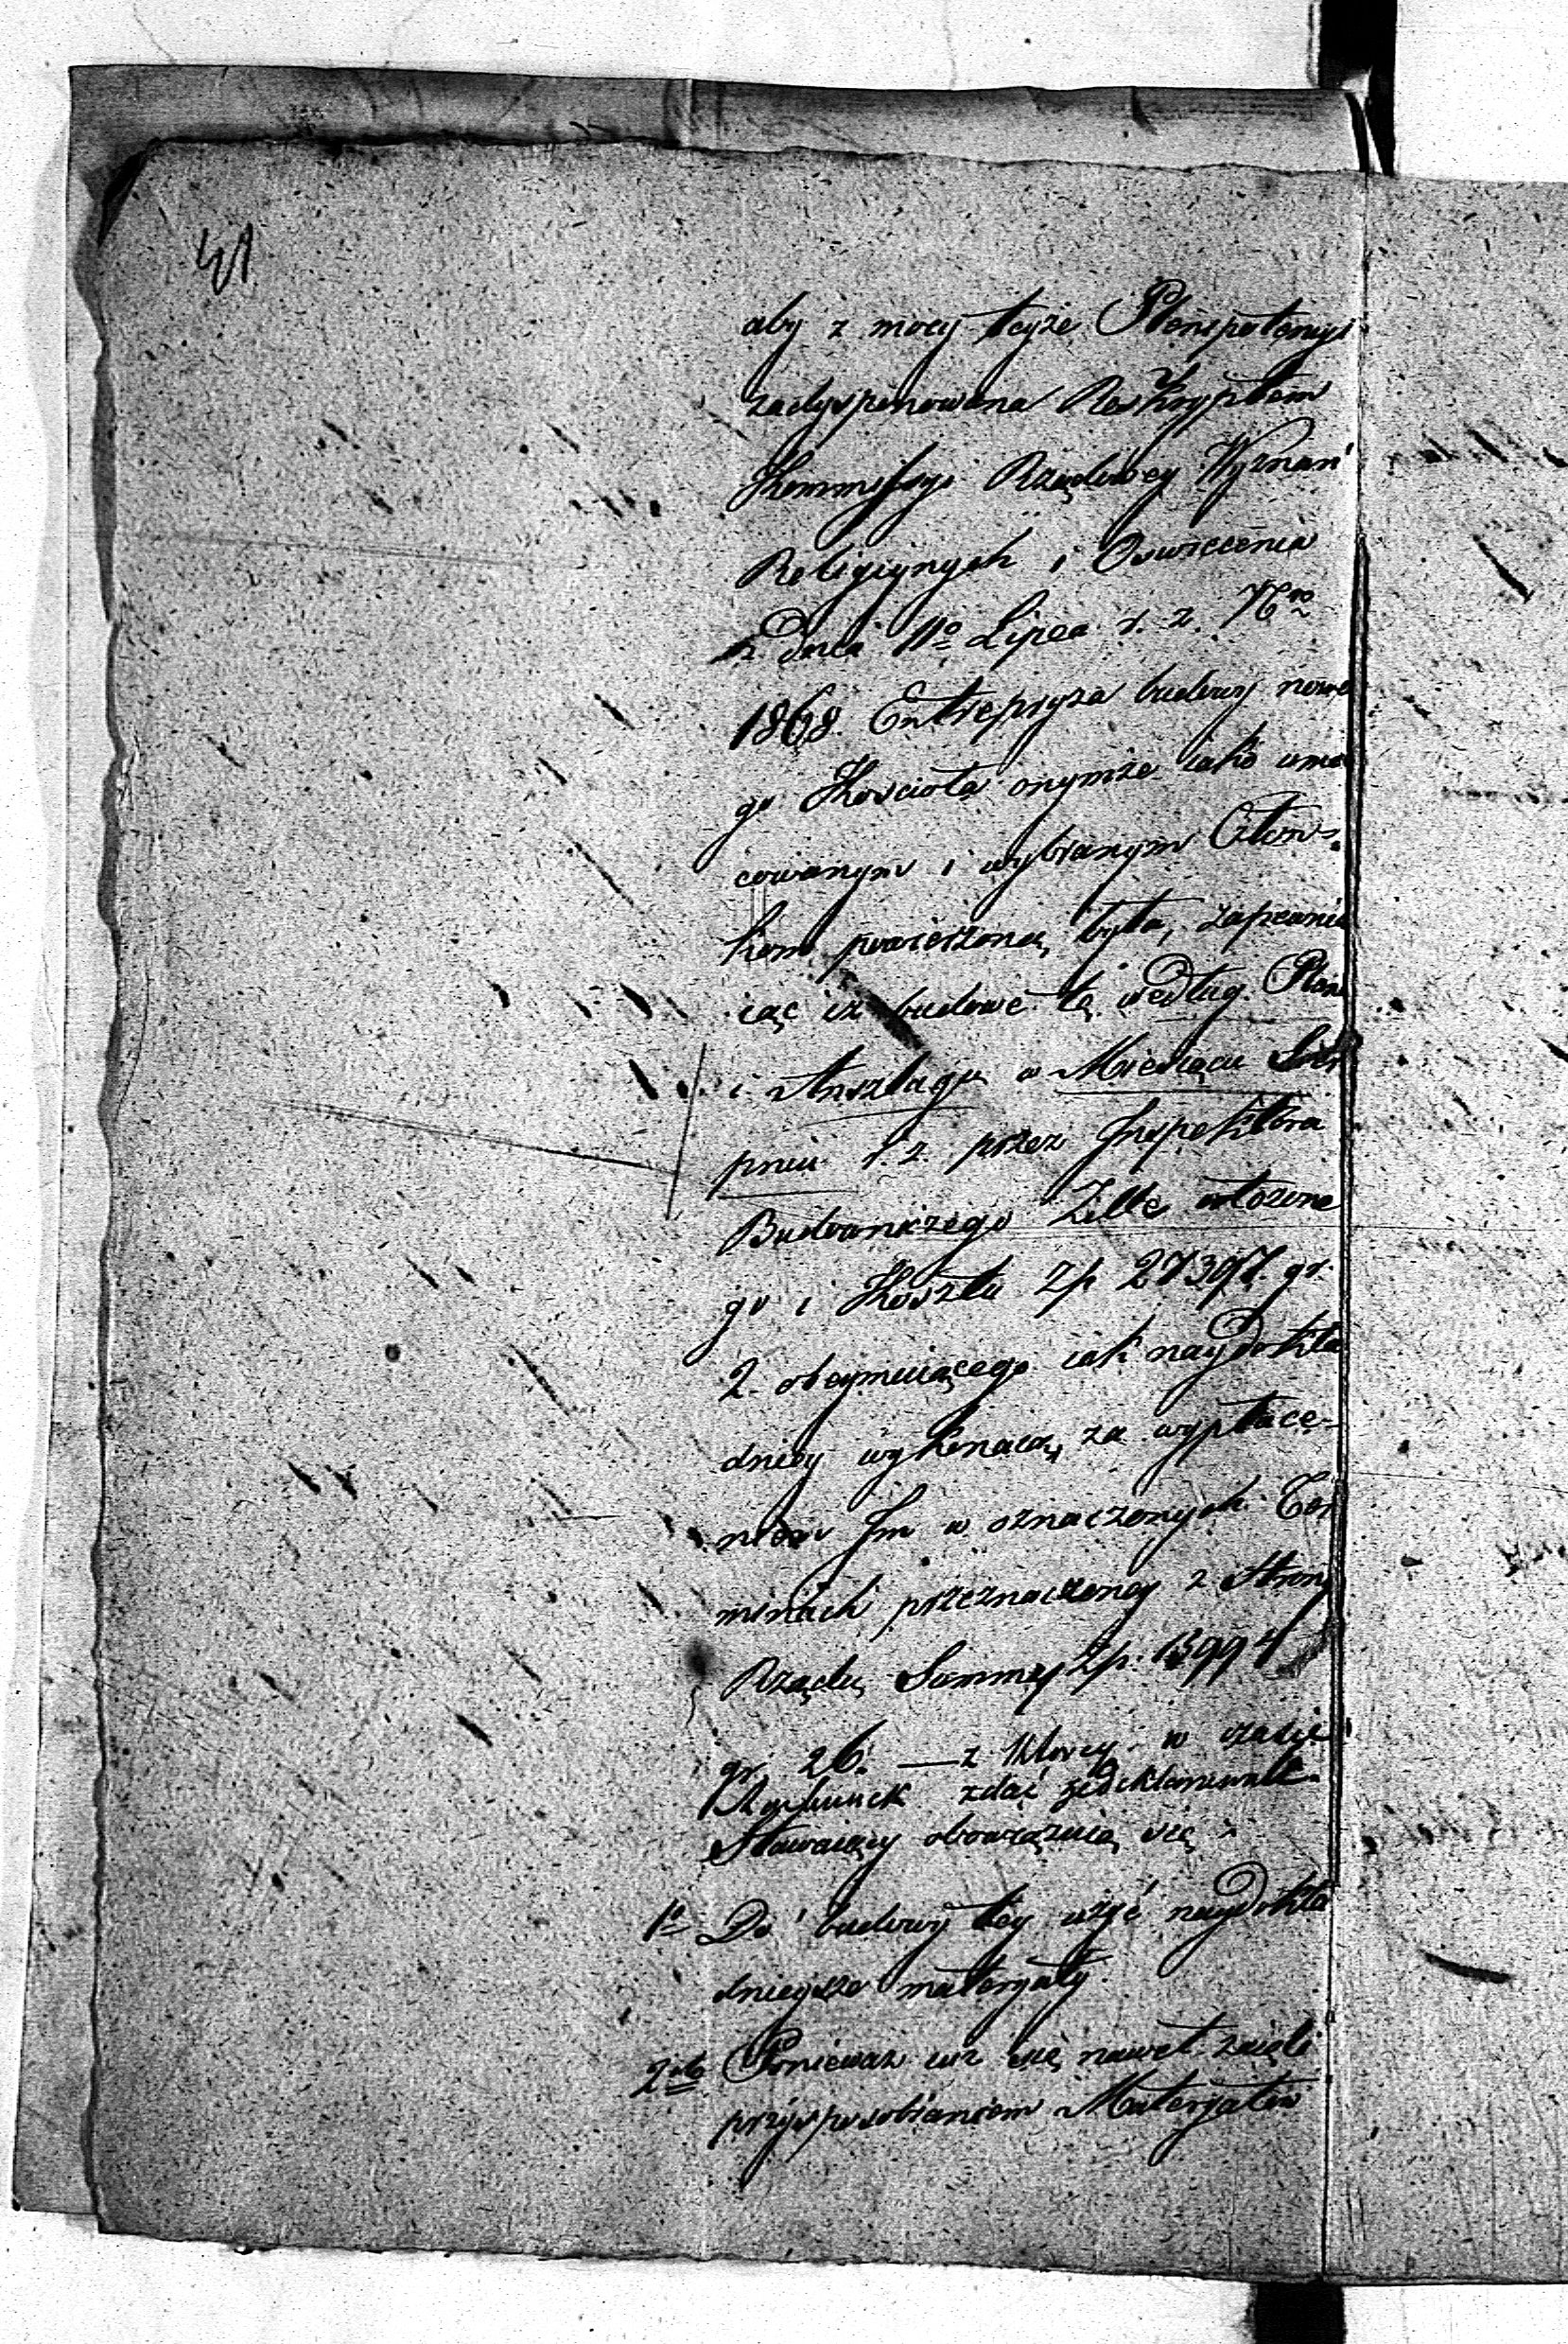 41
aby z mocy teyże Plenipotencyi
zadysponowana Reskryptem
Kommissyi Rządowey Wyznań
Religiynych i Oswiecenia
z Dnia 11º Lipca r. z. Nro
1868. Entrepryza budowy nowe
go Kościoła onymże iako umo
cowanym i wybranym Człon=
kom powierzoną była, zapewnia
iąc iż budowę tę według Planu
i Anszlagu w Miesiącu Sier
pniu r. z. przez Inspektora
Budowniczego Zille ułożone
go i Kosztu Zp 27397. gr.
2. obeymuiącego iak naydokła
dniey wykonaią, za wypłace-
niem Im w oznaczonych Ter
minach przeznaczoney z Strony
Rządu Summy Zp. 13994
gr. 26. — z Którey w czasie
Rachunek zdać zadeklarowali.
Stawaiący obowiązuią się
1º Do budowy tey użyć naydokła
dnieysze materyały.
2do Ponieważ iuż się nawet zaięli
przysposobianiem Materyałów